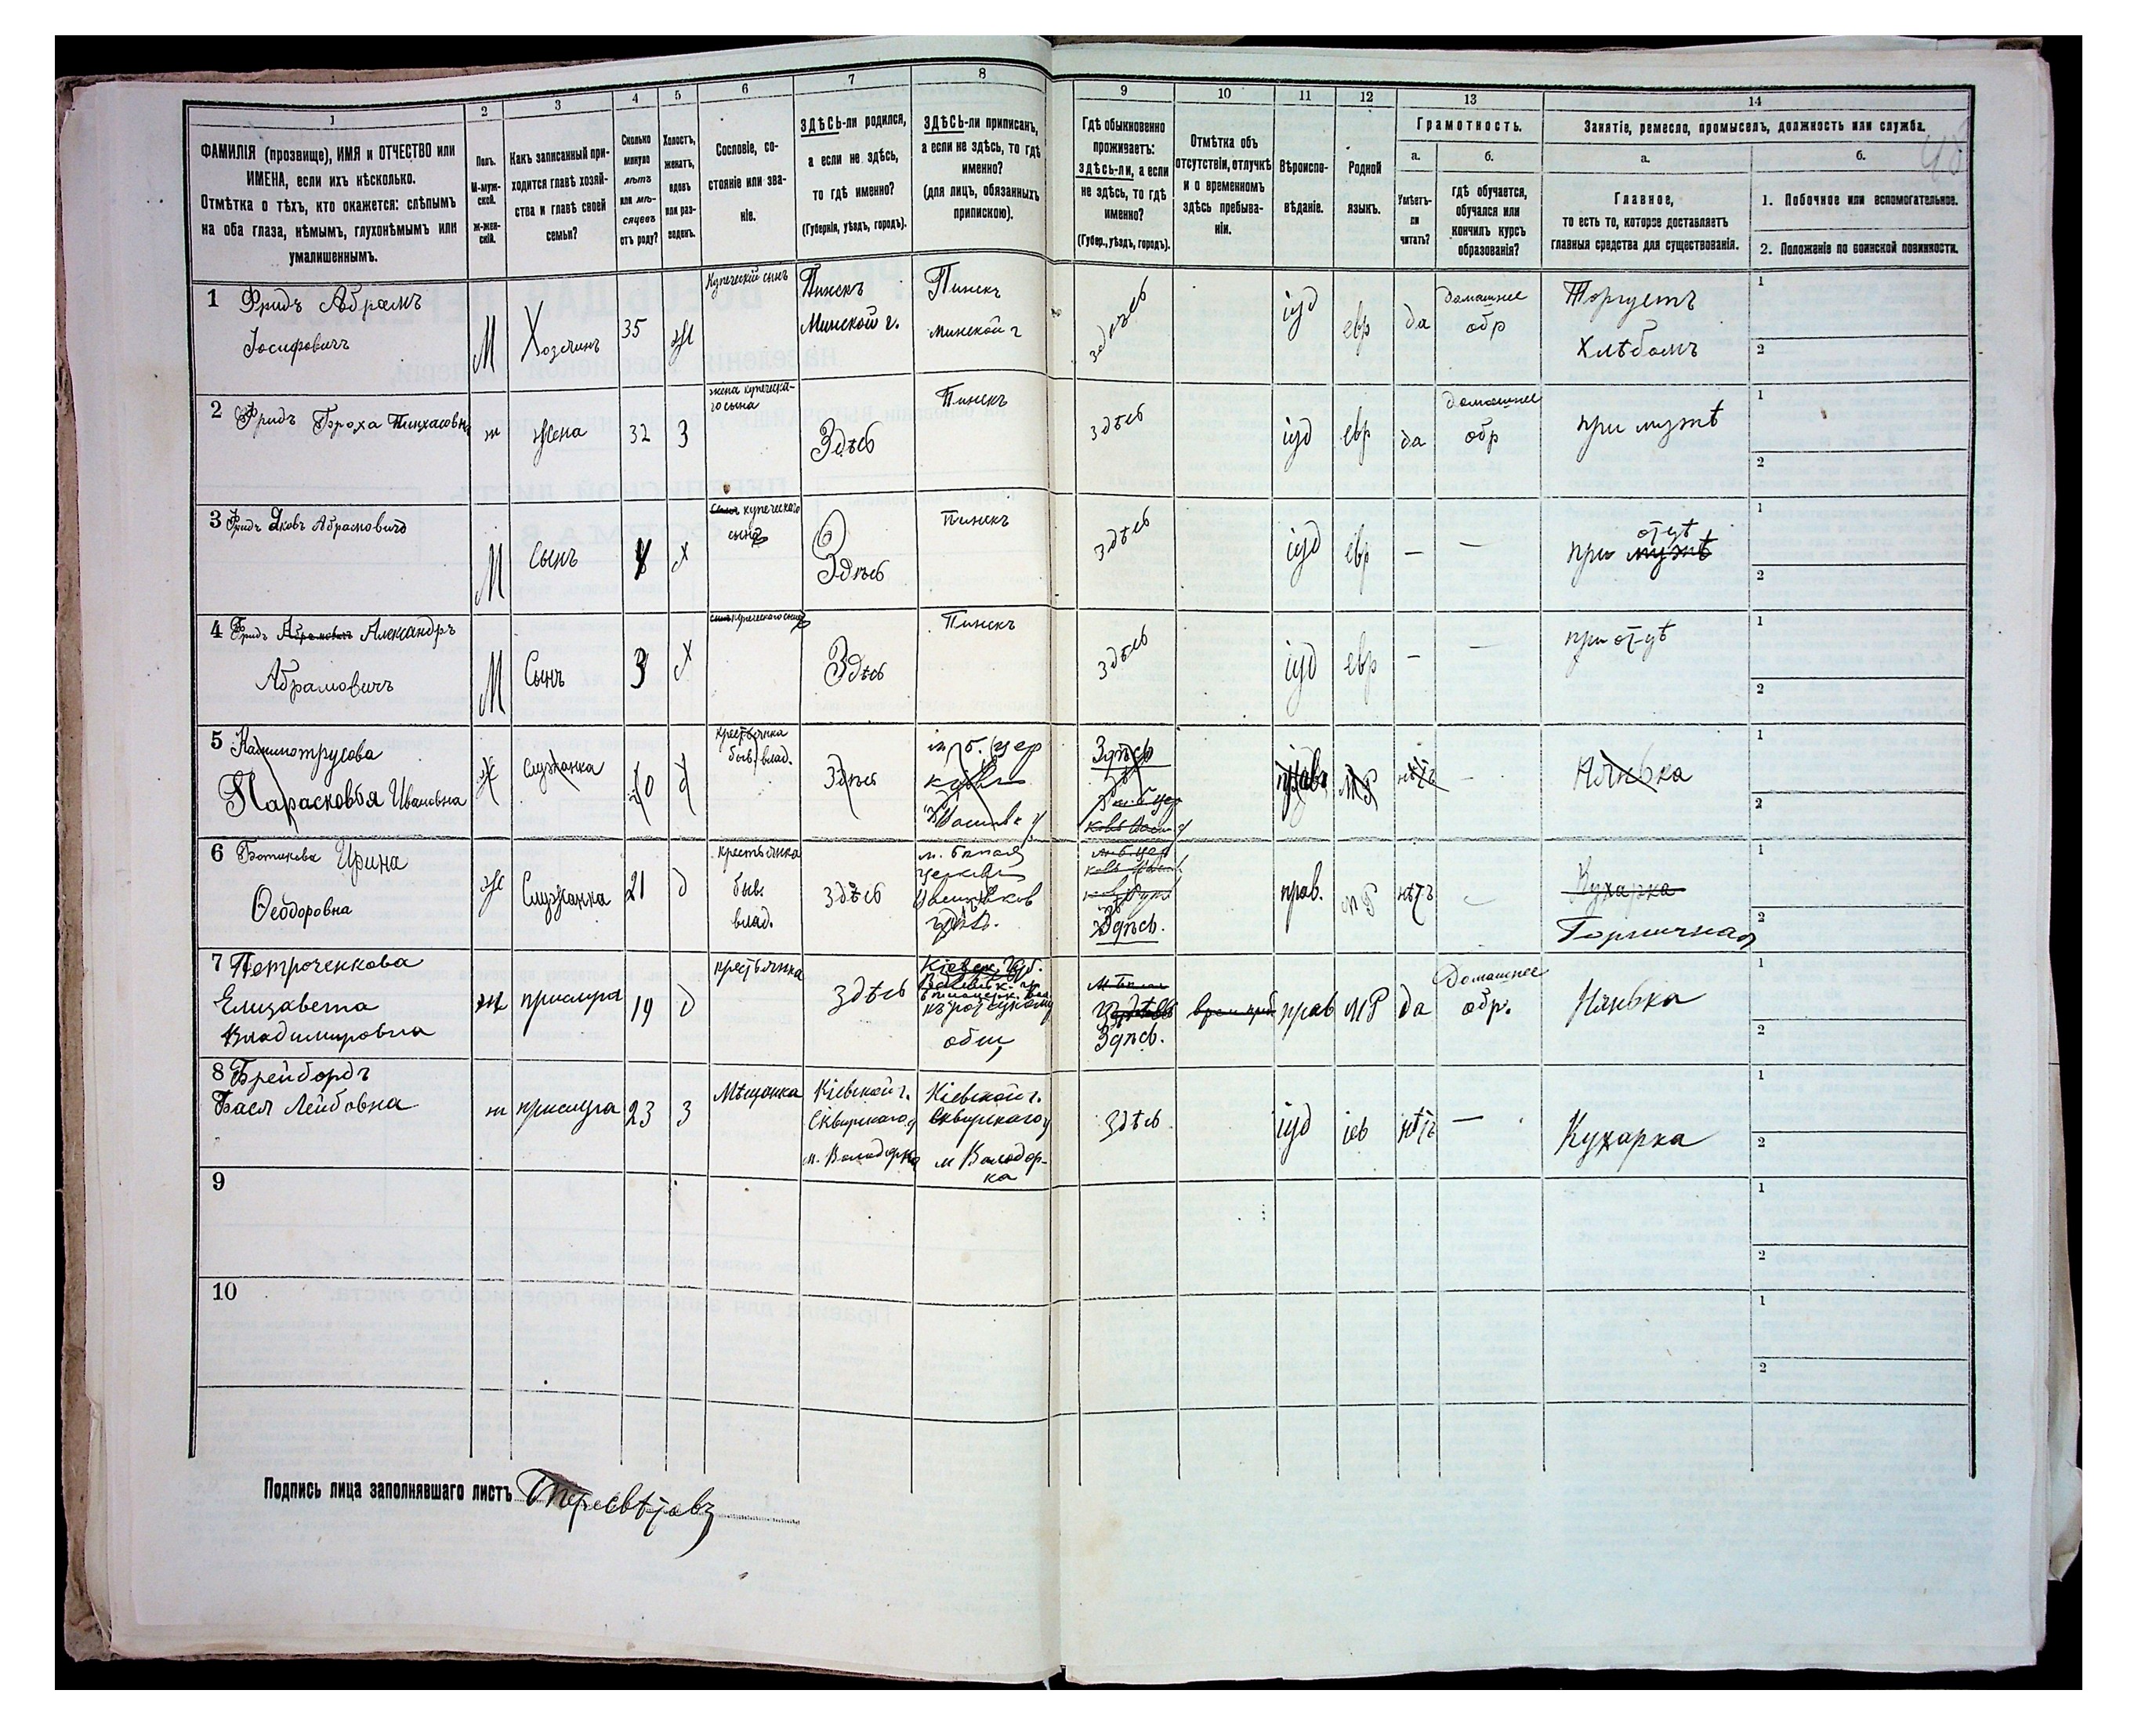 1
2
3
4
5
6
7
8
ФАМИЛІЯ (прозвище), ИМЯ и ОТЧЕСТВО или
ИМЕНА, если ихъ нѣсколько.
Отмѣтка о тѣхъ, кто окажется: слѣпымъ
на оба глаза, нѣмымъ, глухонѣмымъ или
умалишеннымъ.
Полъ.
М-муж-
ской.
Ж-жен-
скій.
Какъ записанный при-
ходится главѣ хозяй-
ства и главѣ своей
семьи?
Сколько
минуло
лѣтъ
или мѣ-
сяцевъ
отъ роду?
Холостъ,
женатъ,
вдовъ
или раз-
веденъ.
Сословіе, со-
стояніе или зва-
ніе.
ЗДѢСЬ-ли родился,
а если не здѣсь,
то гдѣ именно?
(Губернія, уѣздъ, городъ).
ЗДѢСЬ-ли приписанъ,
а если не здѣсь, то гдѣ
именно?
(для лицъ, обязанныхъ
припискою).
9
10
11
12
13
14
Гдѣ обыкновенно
проживаетъ:
здѣсь-ли, а если
не здѣсь, то гдѣ
именно?
(Губер., уѣздъ, городъ).
Отмѣтка объ
отсутствіи, отлучкѣ
и о временномъ
здѣсь пребыва-
ніи.
Вѣроиспо-
вѣданіе.
Родной
языкъ.
Грамотность.
а.
Умѣетъ-
ли
читать?
б.
гдѣ обучается,
обучался или
кончилъ курсъ
образованія?
Занятіе, ремесло, промыселъ, должность или служба.
а.
Главное,
то есть то, которое доставляетъ
главныя средства для существованія.
б.
1. Побочное или вспомогательное.
2. Положеніе по воинской повинности.
1 Фридъ Абрамъ
Іосифовичъ
М
Хозяинъ
35
Ж
Купеческій сынъ
Пинскъ
Минской г.
Пинскъ
Минской г
здѣсь
іуд
евр
да
домашнее
обр
Торгуетъ
Хлѣбомъ
1
2
2 Фридъ Броха Пинхасовна
ж
Жена
32
З
жена купеческа-
го сына
Здѣсь
Пинскъ
здѣсь
іуд
евр
да
домашнее
обр
при мужѣ
1
2
3 Фридъ Яковъ Абрамовичъ
М
Сынъ
Х
купеческого
сына
Здѣсь
Пинскъ
здѣсь
іуд
евр
—
—
отцѣ
при мужѣ
1
2
4 Фридъ Абрамовичъ Александръ
Абрамовичъ
М
Сынъ
3
Х
купеческого сына
Здѣсь
Пинскъ
здѣсь
іуд
евр
—
—
при отцѣ
1
2
5
Парасковья Ивановна
Ж
Служанка
крестьянка
быв. влад.
Здѣсь
Здѣсь
прав
МР
нѣтъ
—
Нянька
1
2
6 Ирина
Ѳеодоровна
Ж
Служанка
21
д
крестьянка
быв.
влад.
здѣсь
Здѣсь.
прав.
МР
нѣтъ
—
Кухарка
Горничная
1
2
7 Петроченкова
Елизавета
Владимировна
ж
прислуга
19
д
крестьянка
здѣсь
общ
Здѣсь.
прав
МР
да
Домашнее
обр.
Нянька
1
2
8 Брейбордъ
Бася Лейбовна
ж
прислуга
23
З
Мѣщанка
Кіевской г.
Сквирскаго у
м. Володарка
Кіевской г.
Сквирскаго у
м Володар-
ка
здѣсь
іуд
іев
нѣтъ
—
Кухарка
1
2
9
1
2
10
1
2
Подпись лица заполнявшаго листъ